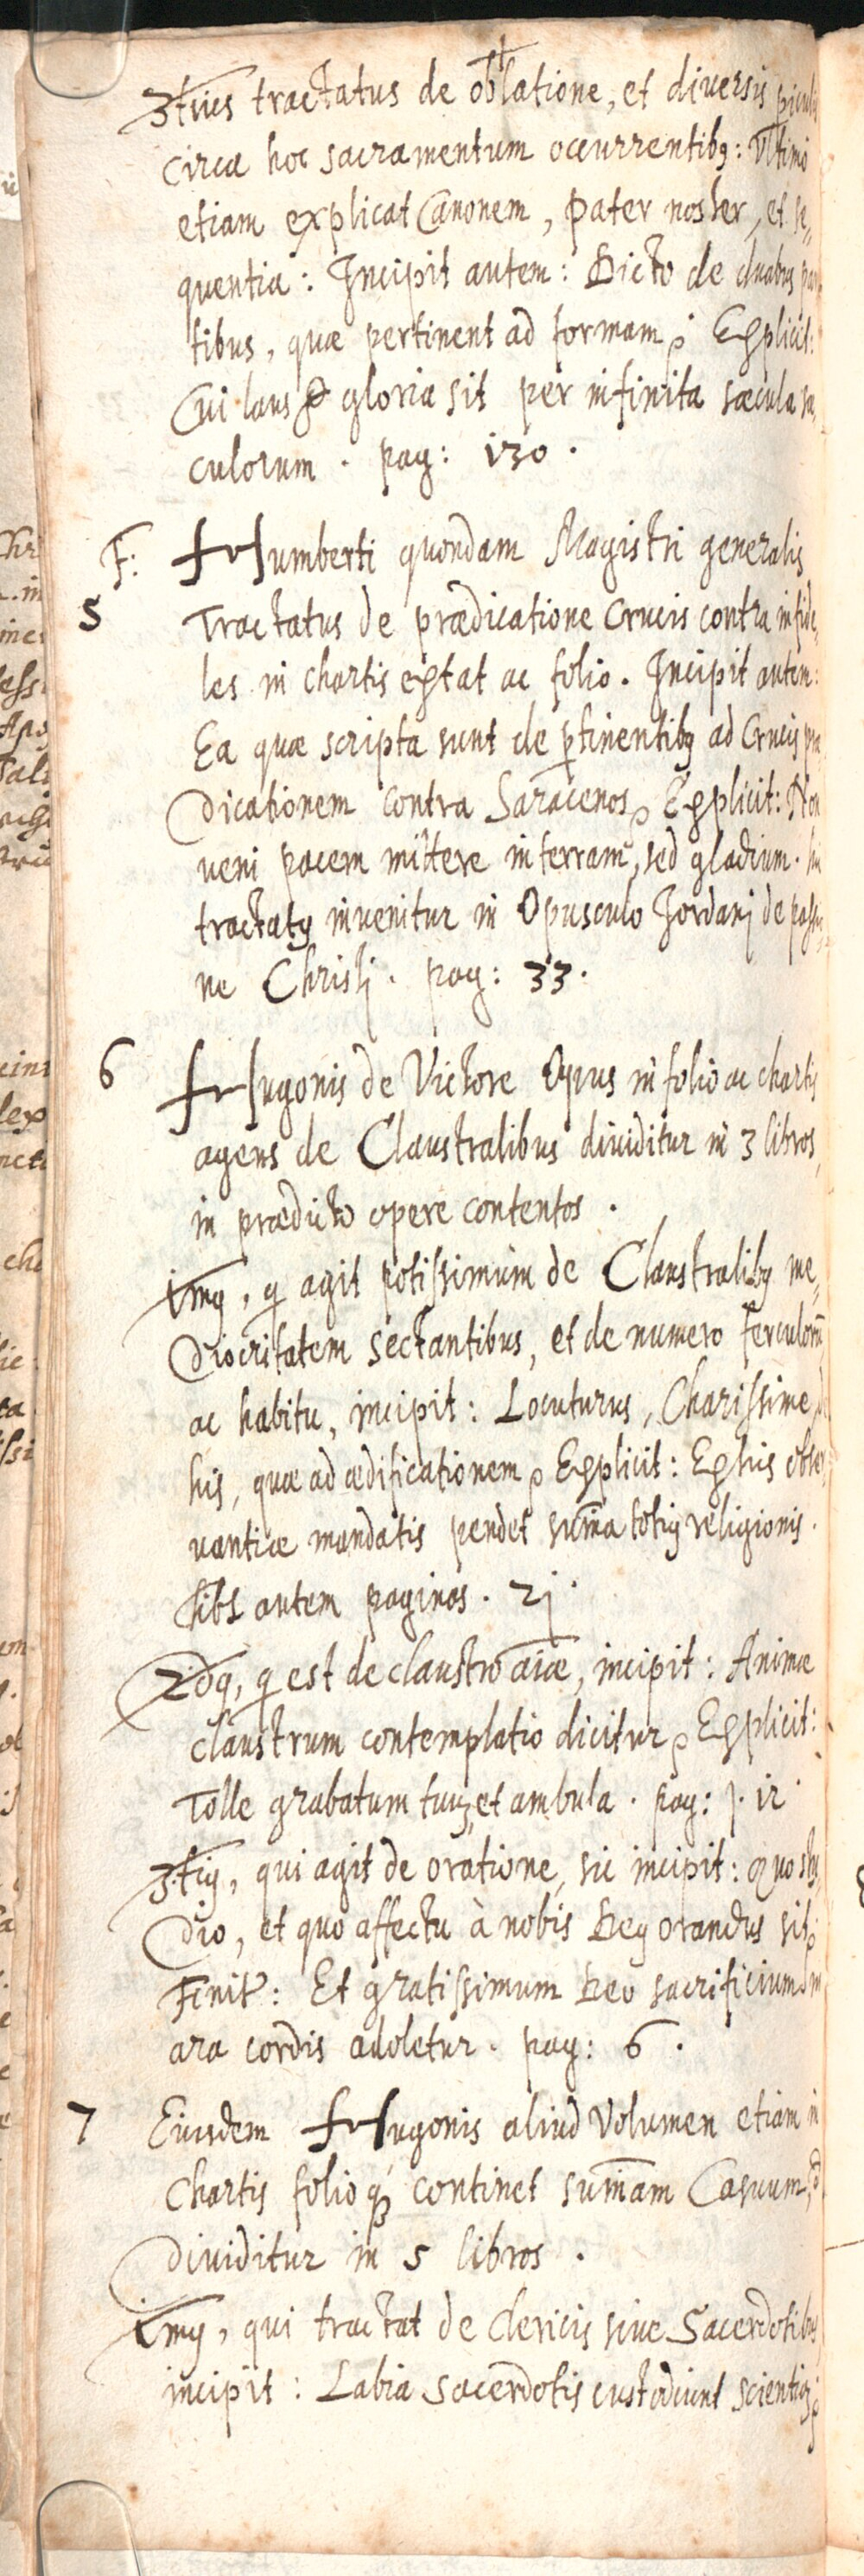 3tius tractatus de oblatione, et diuersis piculis
circa hoc sacramentum occurrentibꝫ: Vltimo
etiam explicat Canonem, pater noster, et se„
quentia: Incipit autem: Dicto de duabus par
tibus, quæ pertinent ad formam Explicit:
Cui laus & gloria sit per infinita sæcula sæ
culorum. pag: 130.
F: Humberti quondam Magistri generalis
5 Tractatus de prædicatione Crucis contra infide„
les in chartis extat ac folio. Incipit autem:
Ea quæ scripta sunt de ꝑtinentibꝫ ad Crucis præ
dicationem contra Saracenos Explicit: Non
ueni pacem mittere in terram, sed gladium.
tractatꝰ inuenitur in Opusculo Jordanj de passio„
ne Christj. pag: 33.
6 Hugonis de Victore Opus in folio ac chartis
agens de Claustralibus diuiditur in 3 libros,
in prædicto opere contentos.
imꝰ, q agit potissimum de Claustralibꝫ me„
diocritatem sectantibus, et de numero ferculorū
ac habitu, incipit: Locuturus, Charissime, de
his, quæ ad ædificationem Explicit: Ex his obser„
uantiæ mandatis pendet sum̄a totiꝰ religionis.
hībt autem paginas. 2j.
2dꝰ, q est de claustro aīæ, incipit: Animæ
claustrum contemplatio dicitur Explicit:
Tolle grabatum tuuꝫ, et ambula. pag: j. ir
3.tiꝰ, qui agit de oratione, sic incipit: Quo stu„
dio, et quo affectu à nobis Deꝰ orandus sit
Finit: Et gratissimum Deo sacrificium in
ara cordis adoletur. pag: 6.
7 Eiusdem Hugonis aliud Volumen etiam in
Chartis folioqꝫ continet sum̄am Casuum,
diuiditur in 5 libros.
imꝰ, qui tractat de clericis siue Sacerdotibus,
incipit: Labia sacerdotis custodiunt scientiaꝫ